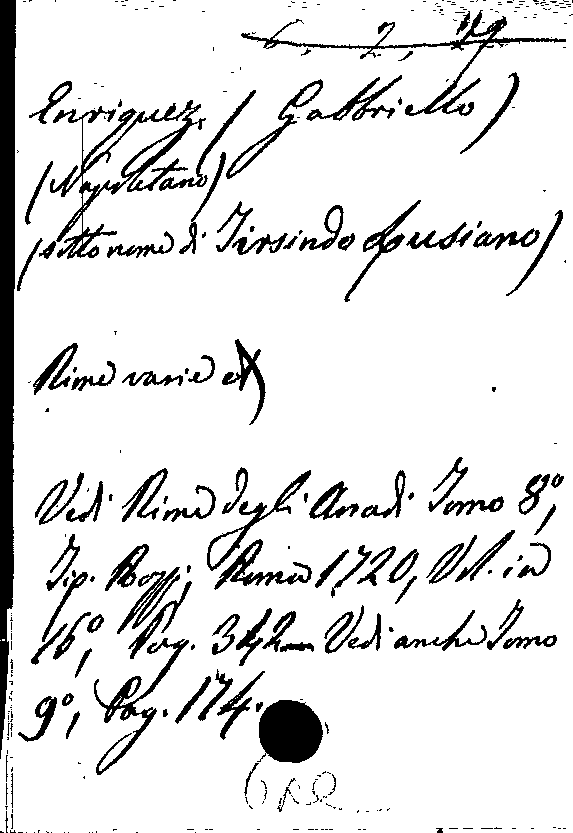 6. 2, 79
Enriquez. (Gabbriello)
(Napoletano)
(sotto nome di Tirsindo Lusiano)
Rime varie
Vedi Rime degli Arcadi Tomo 8º,
Tip. Rossi, Roma 1720, Vol. in
16º, Pag. 342 Vedi anche Tomo
9º, Pag. 174.